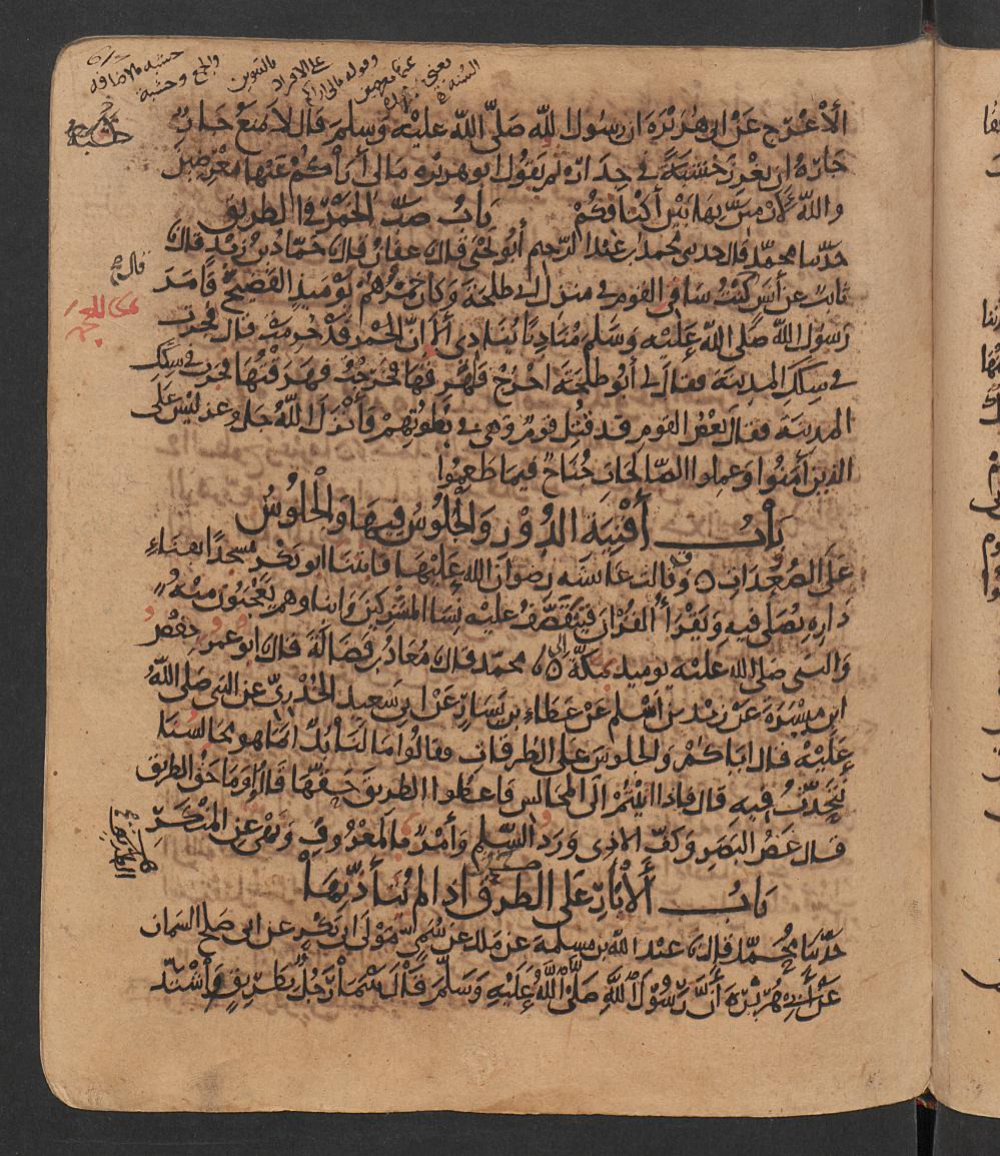 حشبه بالاضافه
والجمع وخشبة
بالتنوين
على الافراد
وقوله مالي اراكم
عنها معرضين
يعني
السنة
الأعرج عن ابي هريرة ان رسول الله صلى الله عليه وسلم قال لا يمنع جار
جاره ان يغرز خشبة في جداره ثم يقول ابو هريره مالي أراكم عنها معرضين
والله لأرمين بها بين أكتافكم باب صب الخمر في الطريق
حدثنا محمد قال حدثني محمد بن عبد الرحيم أبو يحيى قال عفان قال حماد بن زيد قال
ثابت عن أنس كنت ساقي القوم في منزل أبي طلحة وكان خمرهم يومئذ الفضيخ فأمر
رسول الله صلى الله عليه وسلم مناديا ينادي ألا ان الخمر قد حرمت قال فجرت
في سكك المدينة فقال لي أبو طلحة اخرج فأهرقها فخرجت فهرقتها فجرت في سكك
المدينة فقال بعض القوم قد قتل قوم وهي في بطونهم فأنزل الله جل وعز ليس على
الذين آمنوا وعملوا الصالحات جناح فيما طعموا
باب أفنية الدور والجلوس فيها والجلوس
على الصعدات وقالت عائشه رضوان الله عليها فابتنا ابو بكر مسجدا بفناء
داره يصلي فيه ويقرأ القرآن فيتقصف عليه نسا المشركين وابناوهم يعجبون منه
والنبي صلى الله عليه يوميذ بمكة محمد قال معاذ بن فضالة قال ابو عمر حفص
ابن ميسرة عن زيد بن أسلم عن عطاء بن يسار عن ابي سعيد الخدري عن النبي صلى الله
عليه قال اياكم والجلوس على الطرقات وقالوا ما لنا بد انما هو مجالسنا
نتحدث فيه قال فاذا اتيتم الى المجالس فاعطوا الطريق حقها قالوا وما حق الطريق
قال غض البصر وكف الاذى ورد السلم وأمر بالمعروف ونهي عن المنكر
باب ألأبار على الطرق اذا لم يتأذ بها
حدثنا محمد قال عبد الله بن مسلمة عن ملك عن سمي مولى ابي بكر عن ابي صلح السمان
عن أبي هريرة أن رسول الله صلى الله عليه وسلم قال بينما رجل بطريق وأشتد